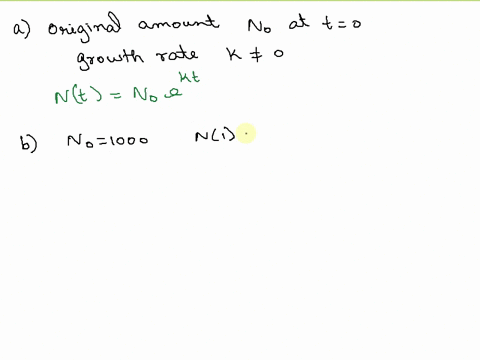 a) original amount N₀ at t=0
growth rate k ≠ 0
N(t) = N₀ e^{kt}
b) N₀=1000 N(1)